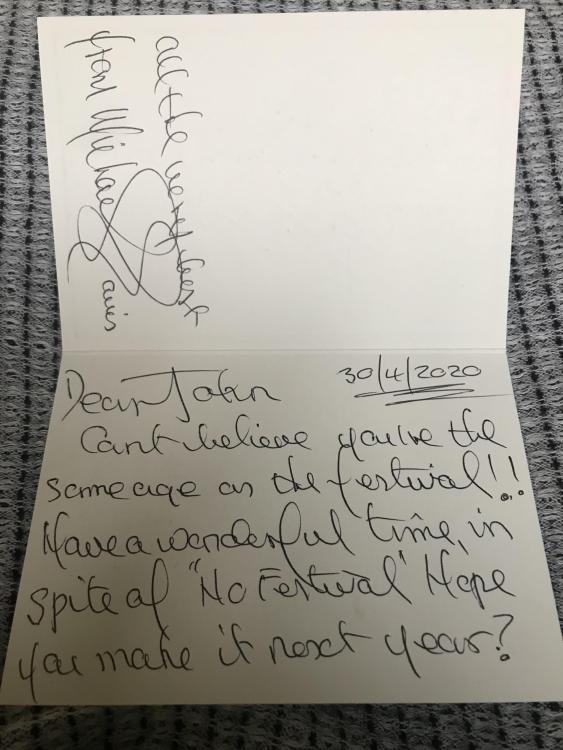 30/4/2020
Dear John
Can't believe you're the
same age as the festival!!
Have a wonderful time, in
spite of "No Festival" Hope
you make it next year?
All the very best
from Michael Davis